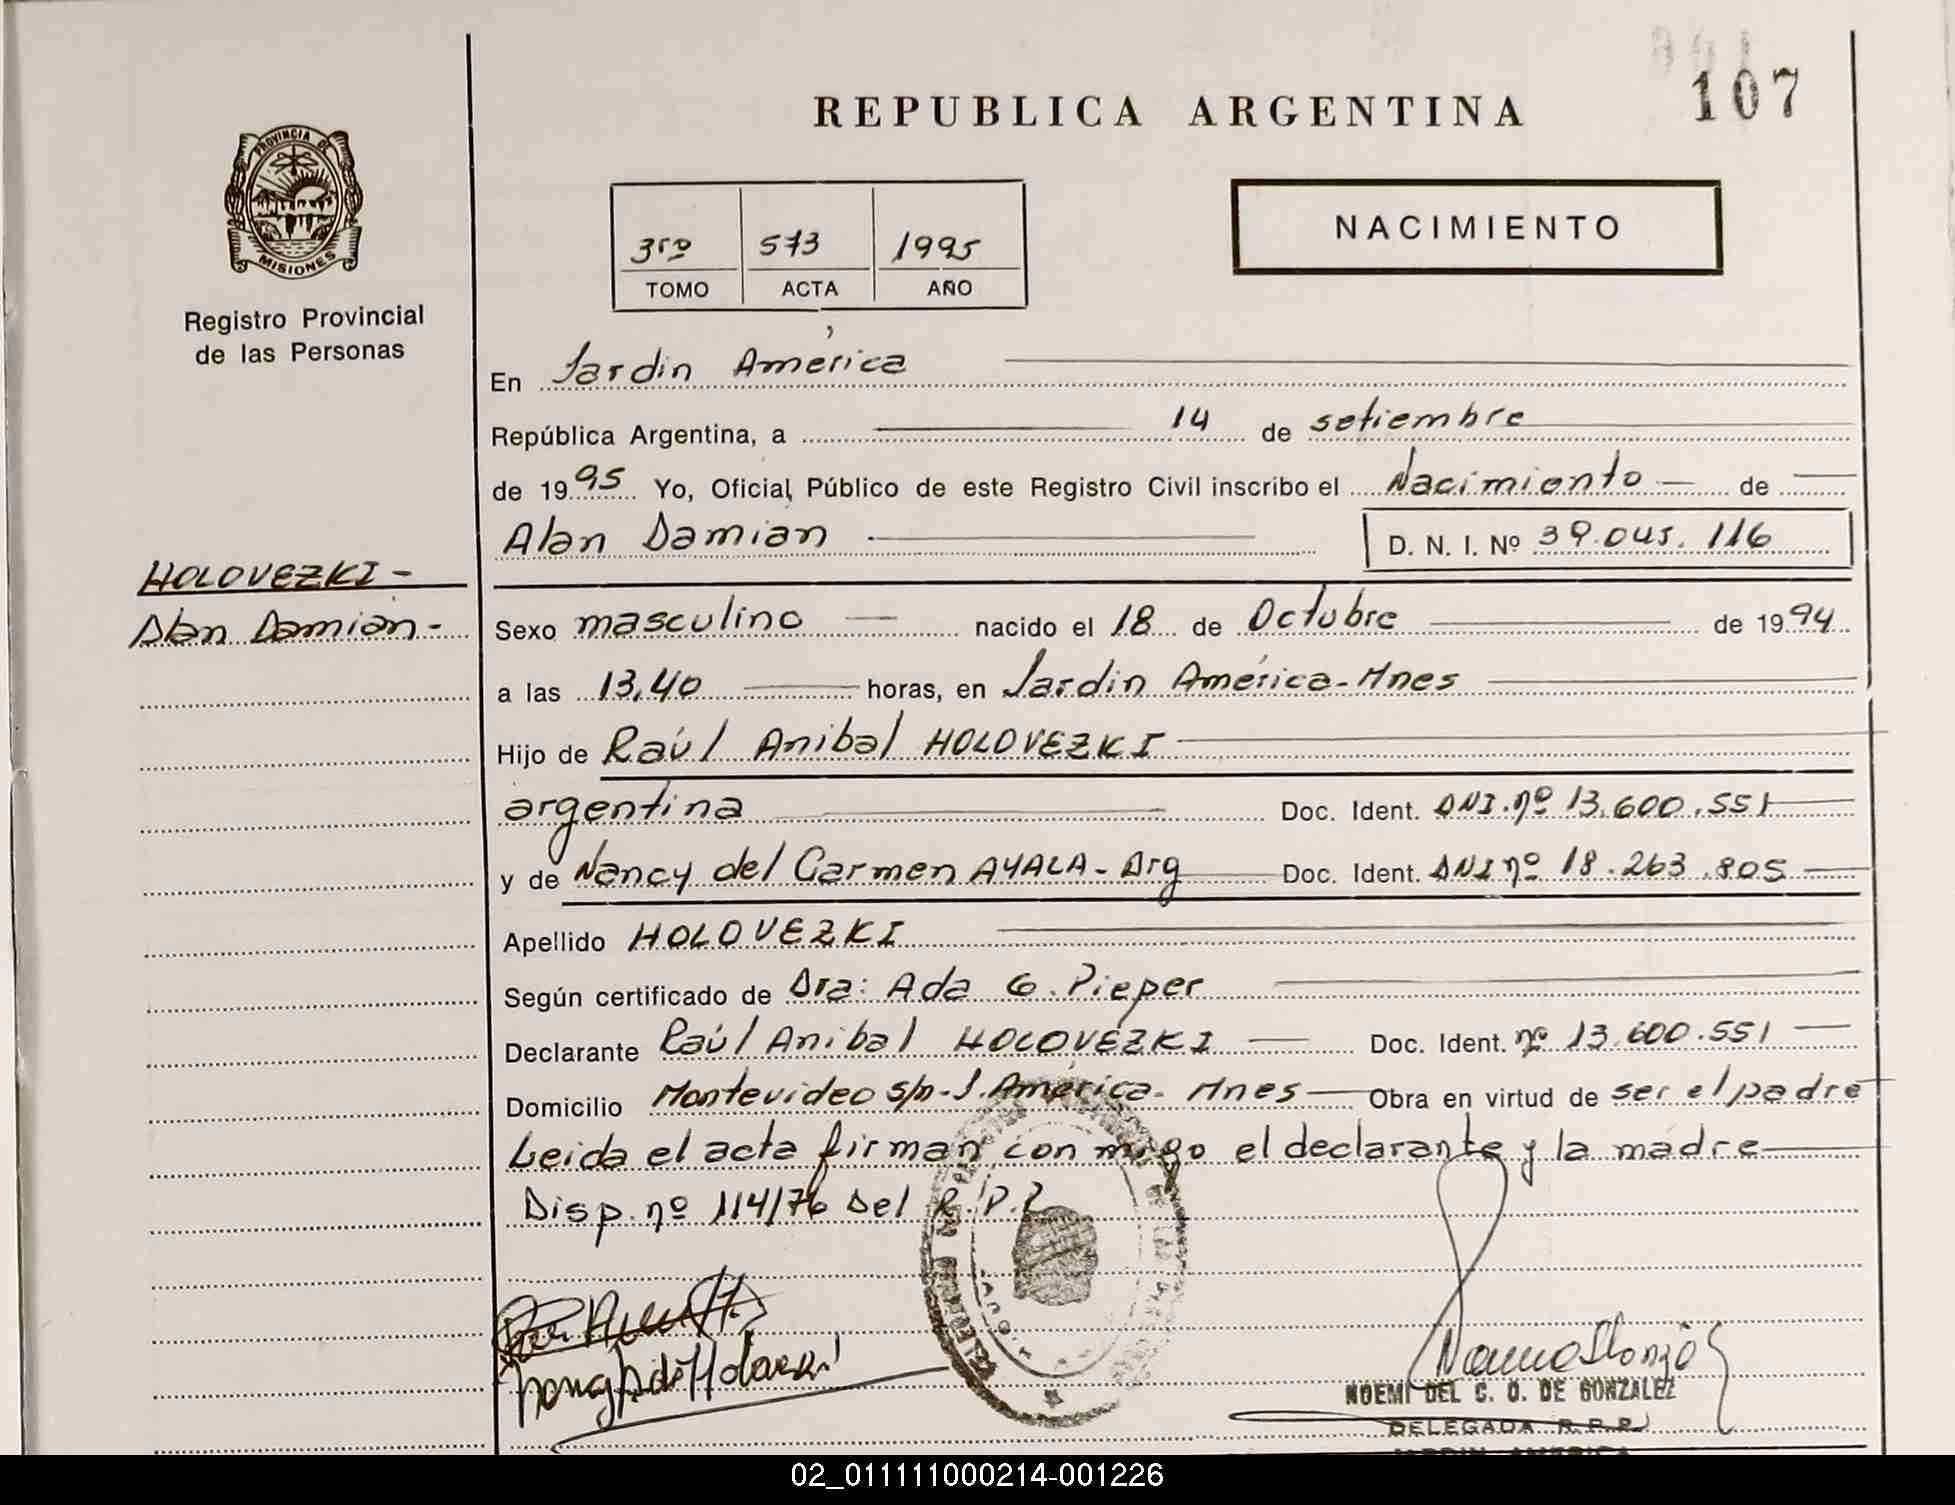 107
REPUBLICA ARGENTINA
PROVINCIA DE
MISIONES
NACIMIENTO
3ro 573 1995
TOMO ACTA AÑO
Registro Provincial
de las Personas
En Jardin América
República Argentina, a 14 de setiembre
de 1995 Yo, Oficial Público de este Registro Civil inscribo el Nacimiento de
Alan Damian D. N. I. Nº 39.045.116
HOLOVEZKI -
Alan Damián -
Sexo masculino nacido el 18 de Octubre de 1994
a las 13,40 horas, en Jardin América - Mnes
Hijo de Raúl Anibal HOLOVEZKI
argentina Doc. Ident. DNI. nº 13.600.551
y de Nancy del Carmen AYALA - Arg Doc. Ident. DNI nº 18.263.805
Apellido HOLOVEZKI
Según certificado de Dra: Ada G. Pieper
Declarante Raúl Anibal HOLOVEZKI Doc. Ident. nº 13.600.551
Domicilio Montevideo s/n - J. América - Mnes Obra en virtud de ser el padre
Leida el acta firman con migo el declarante y la madre
Disp. nº 114/76 Del R.P.P
NOEMI DEL C. O. DE GONZALEZ
DELEGADA R.P.P.
JARDIN AMERICA
02_011111000214-001226